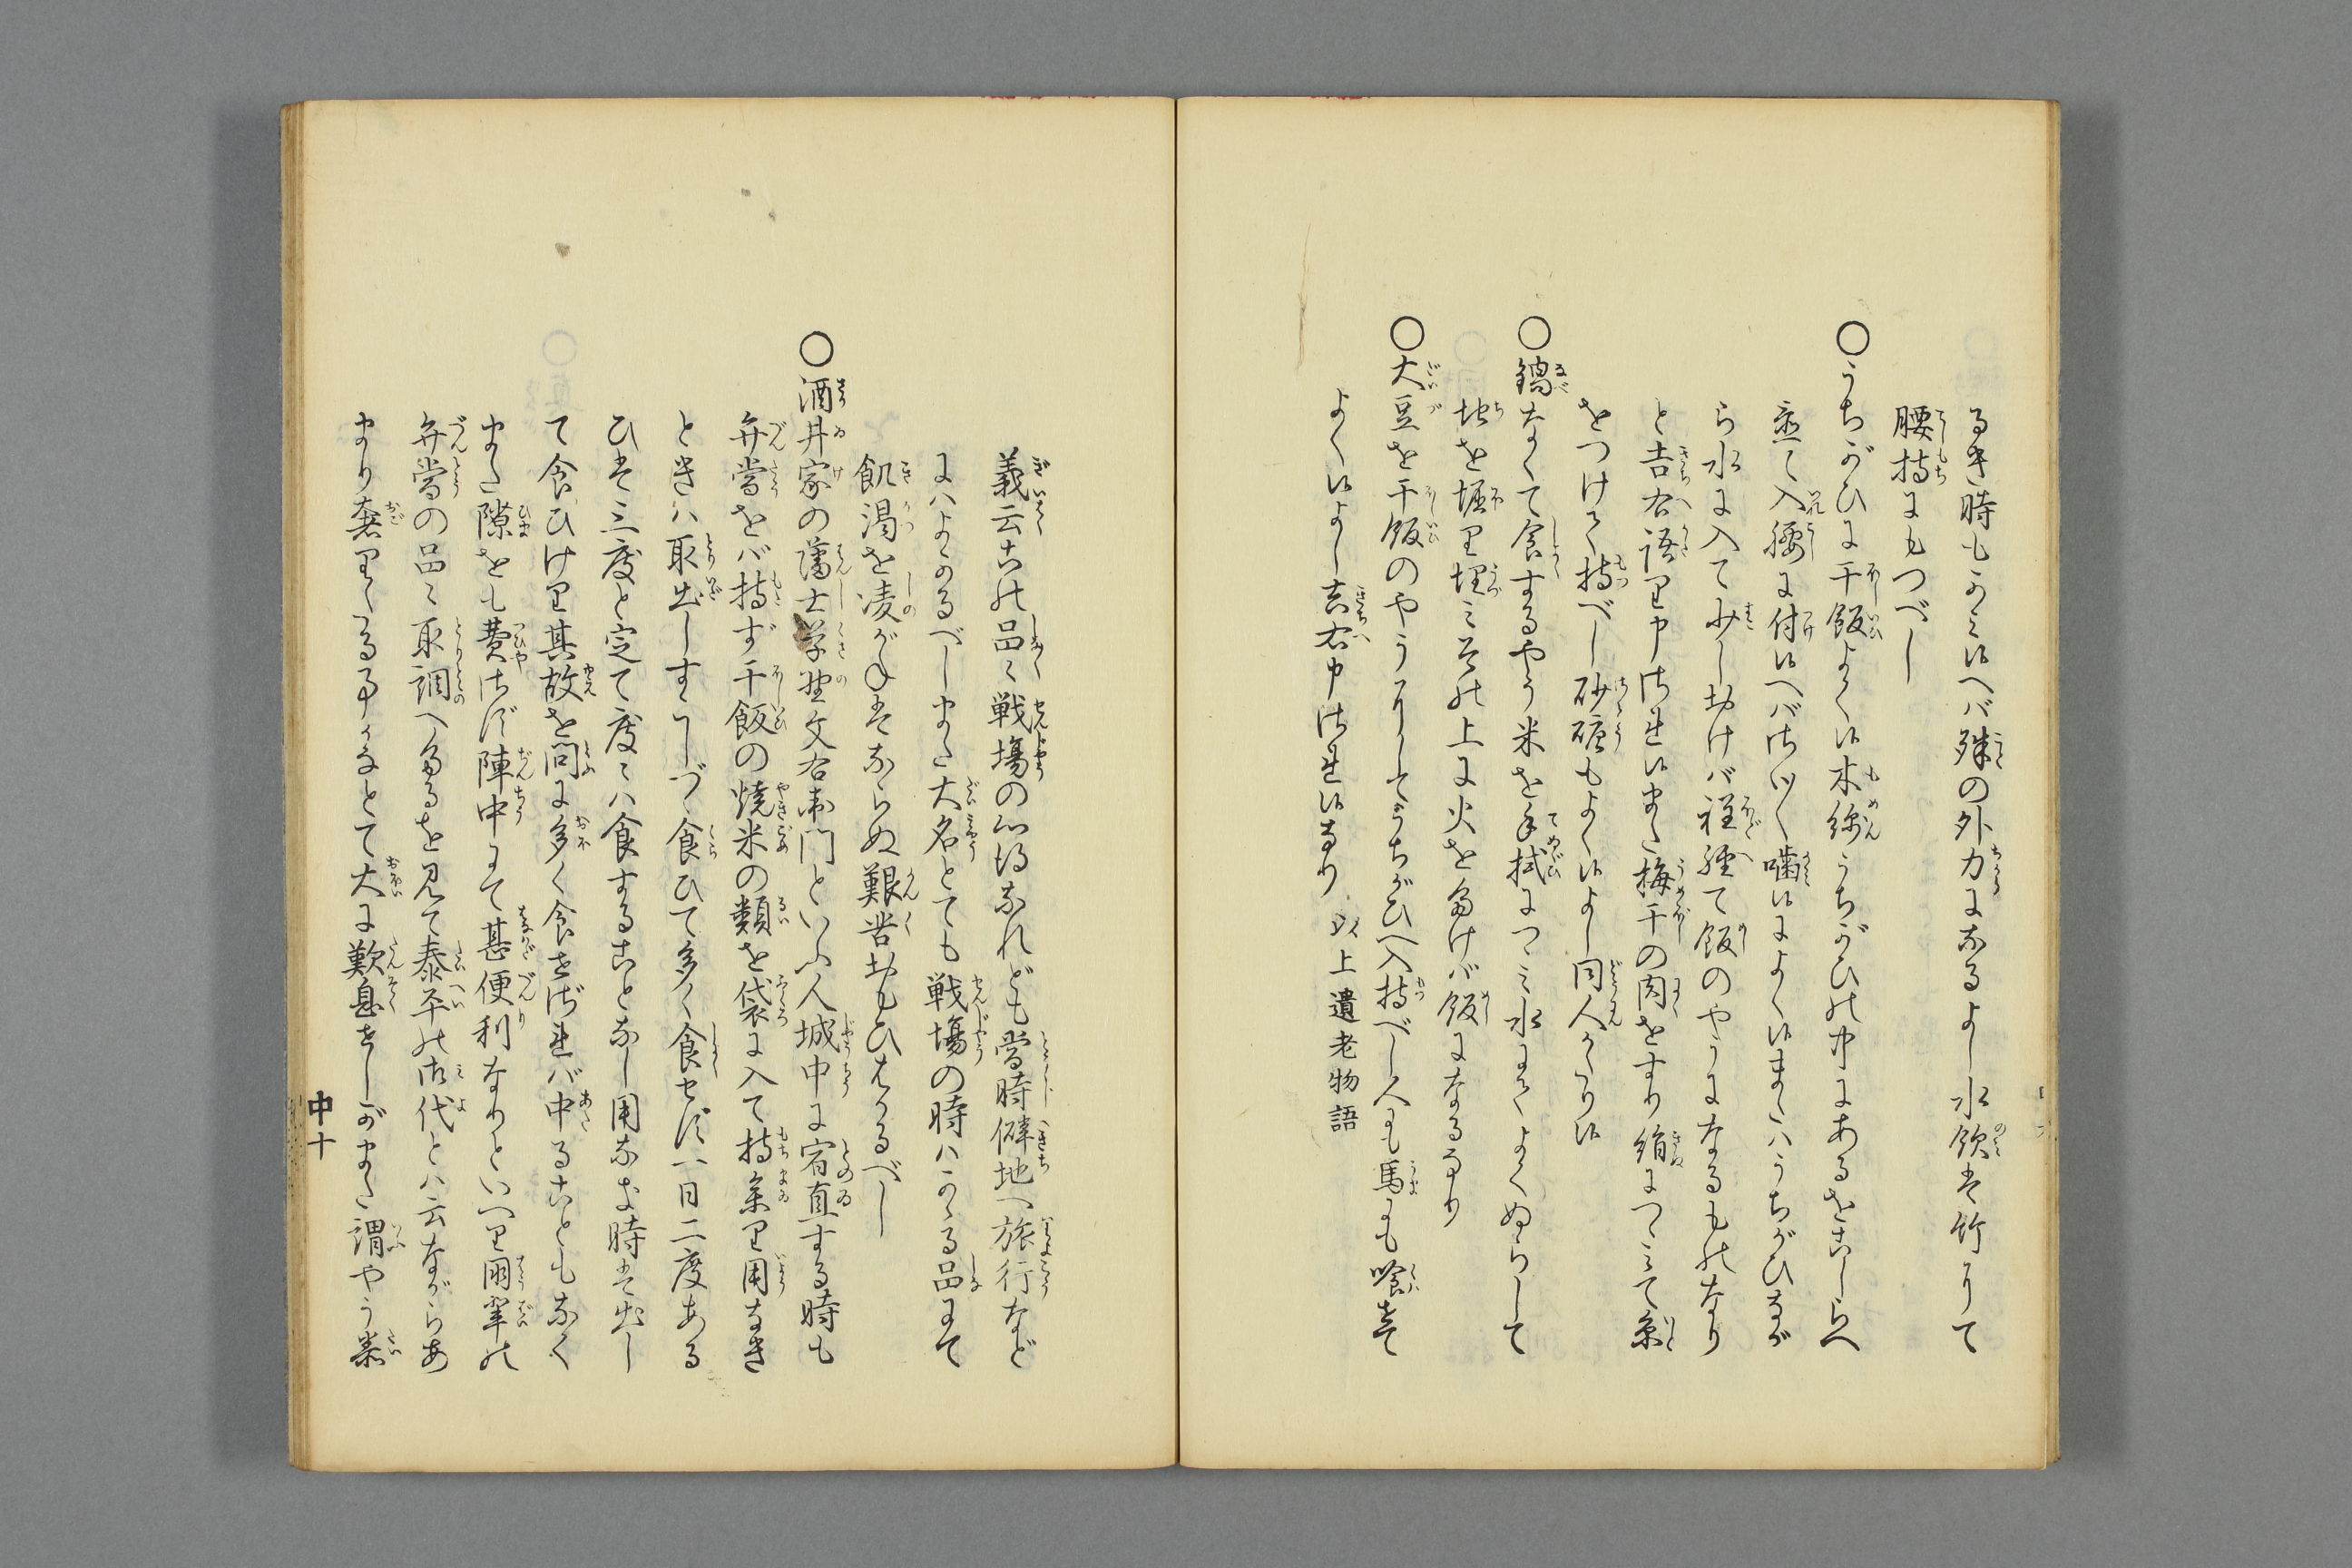 るき時もかミ候へバ殊の外力になるよし水飲は竹にて
腰持にもつべし
〇うちがひに干飯よく候木綿うちがひの中にあるをこしらへ
煎て入腰に付候へバさびしく噛候によく候またハうちがひなが
ら水に入て少しおけバ程経て飯のやうになるものなり
と吉右語り申され候また梅干の肉をすり絹につゝミて糸
をつけて持べし砂糖もよく候よし同人かたり候
〇鍋なくて食するやう米を手拭につゝミ水にてよくぬらして
地を堀り埋ミその上に火をたけバ飯になるなり
〇大豆を干飯のやうにしてうちがひへ入持べし人にも馬にも喰せて
よく候よし吉右申され候なり 以上遺老物語
義云この品々戦場の心得なれども当時僻地へ旅行など
にハよかるべしまた大名とても戦場の時ハかゝる品にて
飢渇を凌がねはならぬ艱苦おもひはかるべし
〇酒井家の藩士草野文右衛門といふ人城中に宿直する時も
弁当をバ持ず干飯の焼米の類を袋に入て持参り用なき
ときハ取出しすこしづゝ食ひて多く食せず一日二度ある
ひは三度と定て度々ハ食することなし用なき時は出し
て食ひけり其故を問に多く食せざれバ中ることもなく
また隙をも費さず陣中にて甚便利なりといへり朋輩の
弁当の品々取調へたるを見て泰平の御代とハ云ながらあ
まり奢りたる事かなとて大に歎息せしがまた謂やう泰
中十